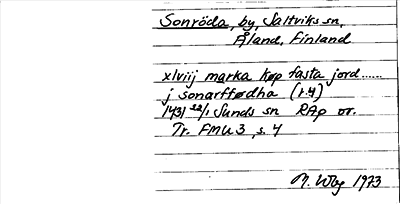 Sonröda, by, Saltviks sn,
Åland, Finland
xlviij marka køp fasta jord......
j sonarfřødha (r.4)
1431 22/1 Sunds sn RAp or.
Tr. FMU 3, s. 4
1973